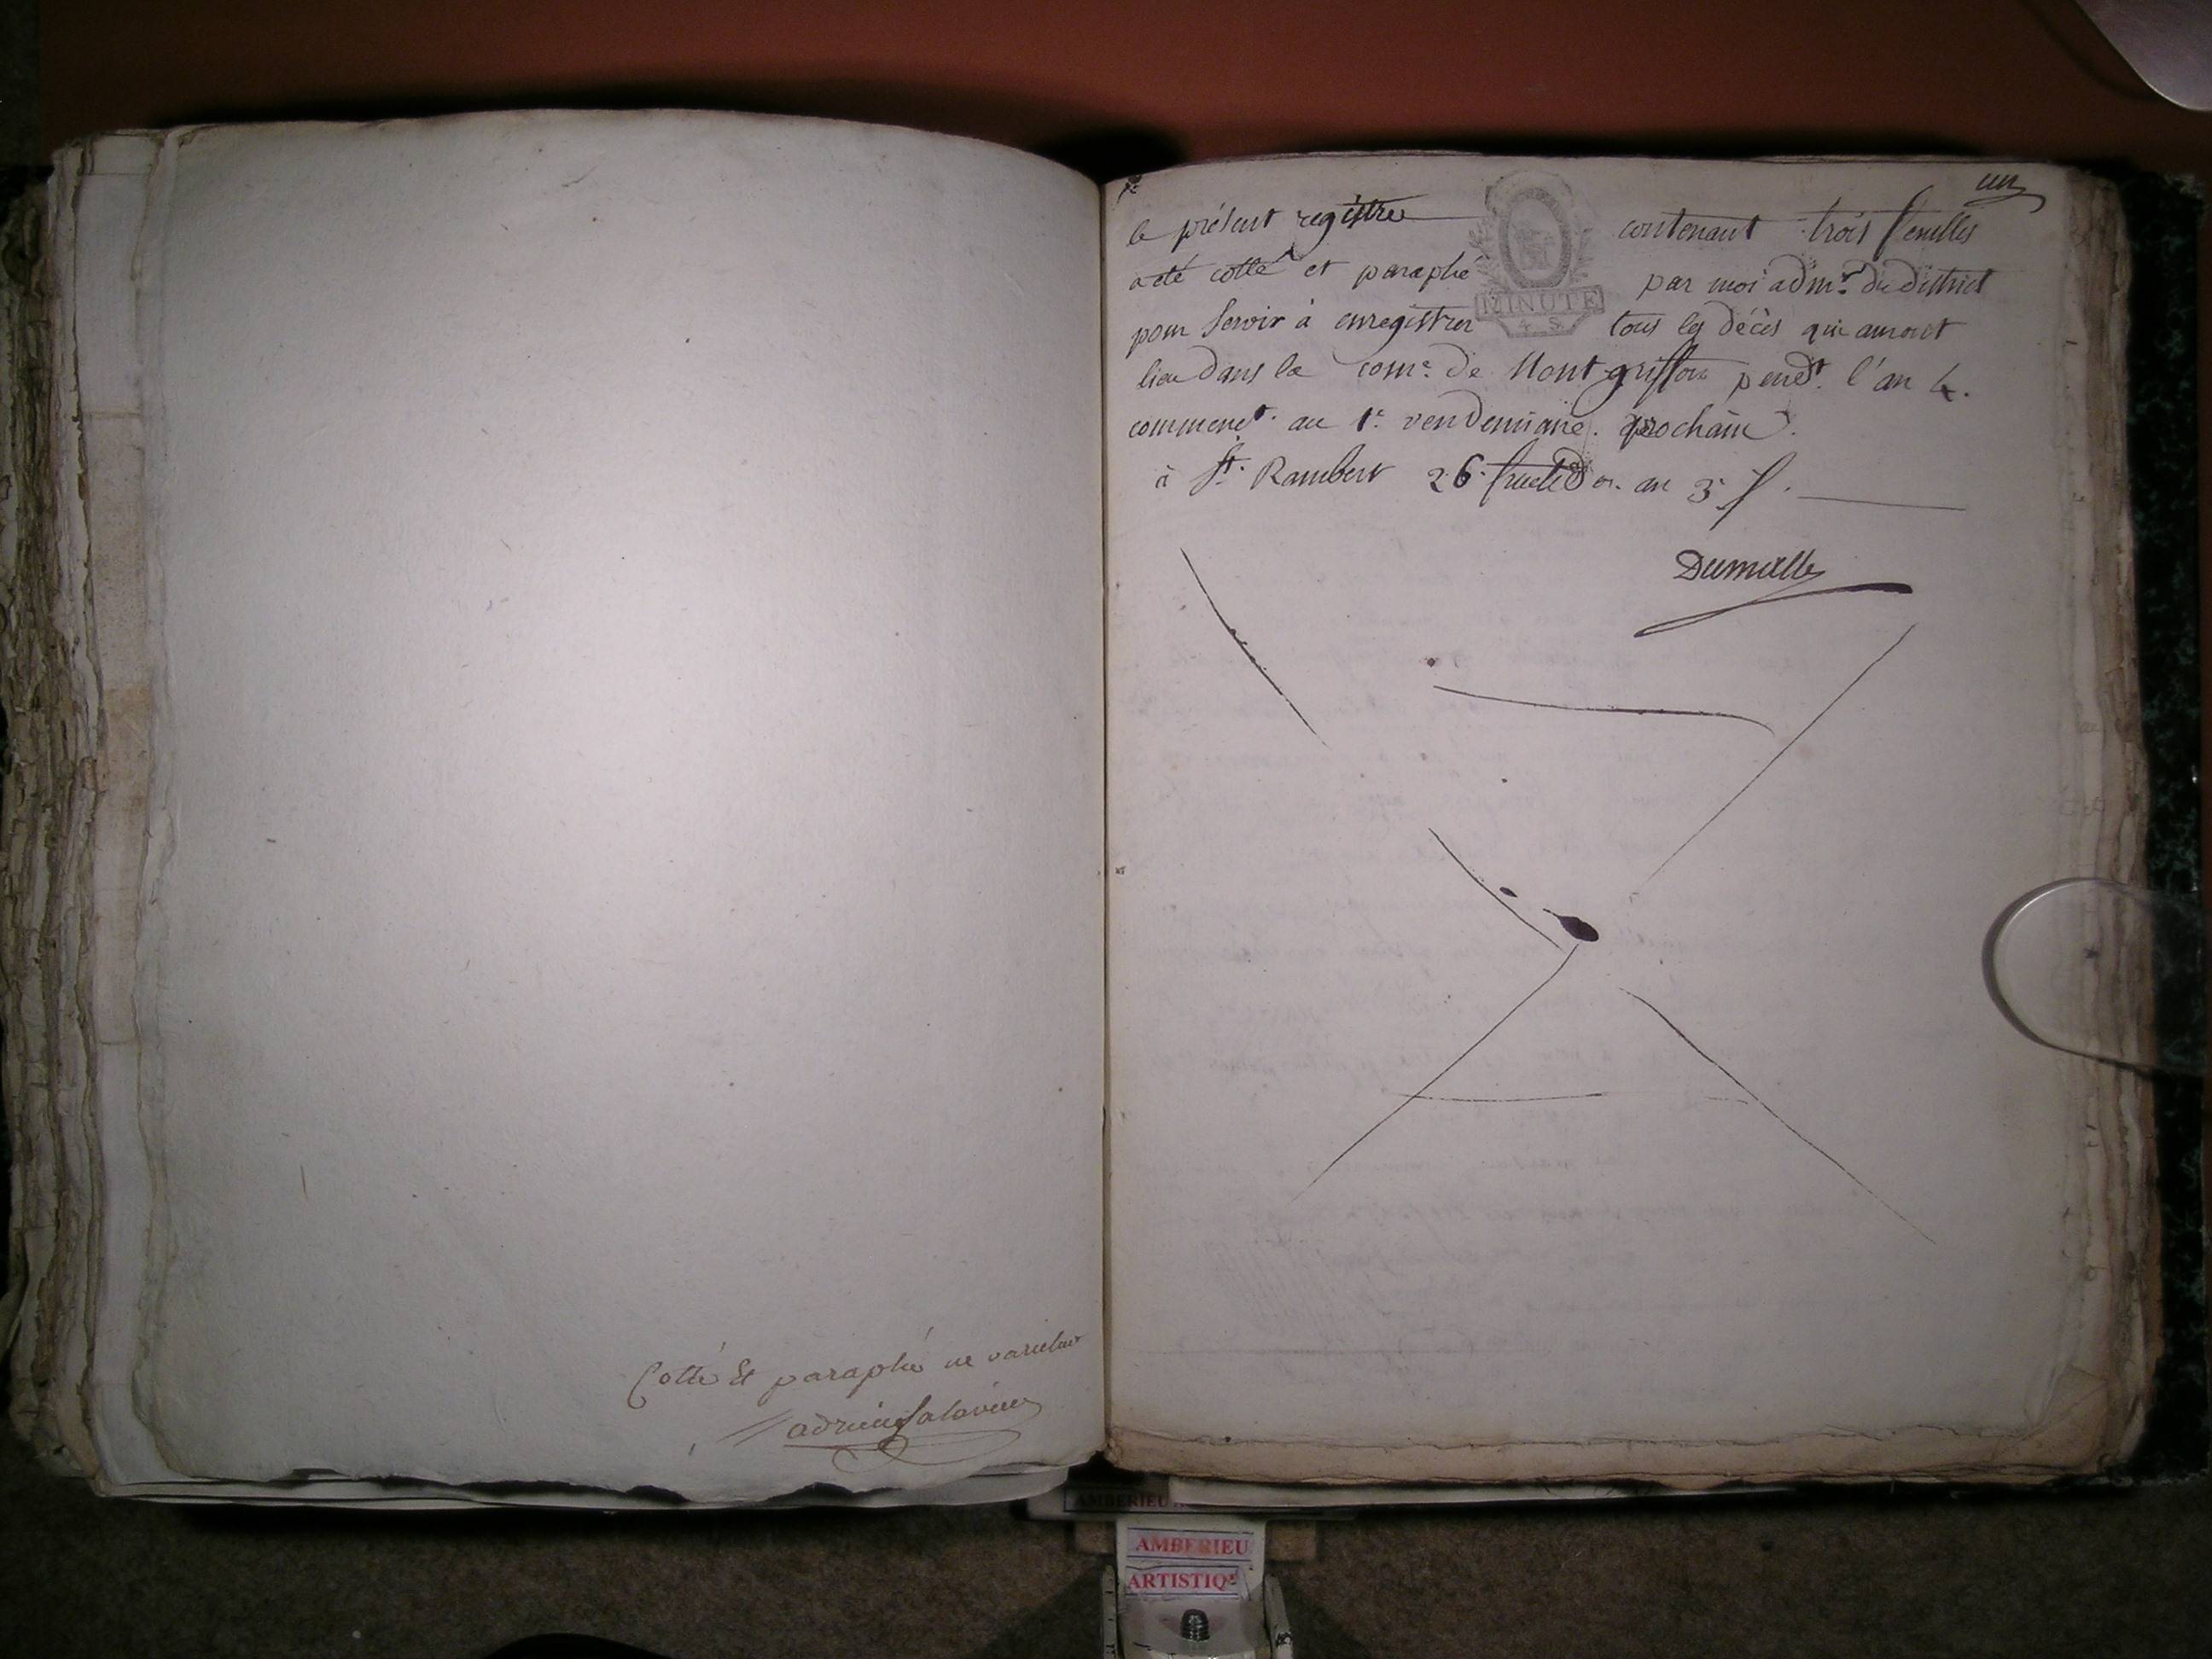 Cotté Et paraphé ne varietur
un
le présent registre contenant trois feuilles
a été cotté et paraphé par moi admr. du district
pour servir à enregistrer tous les décès qui auront
lieu dans la come. de Montgriffon pendt. l'an 4.
commenct. au 1er. vendemiaire. prochain.
à St. Rambert 26 fructidor. an 3e
MINUTE
4 S
Dumalle
AMBERIEU
AMBERIEU
ARTISTIQ